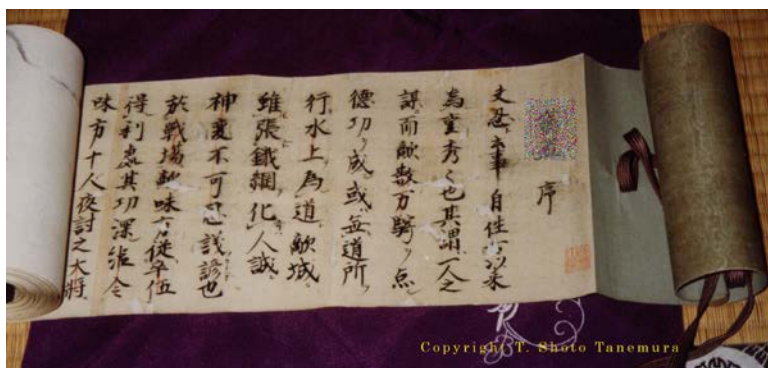 序
夫忍云事自往以来
為重秀々也其謂一人之
謀而敵数万騎ヲ点
徳功ヲ成或無道所ヲ
行水上為道敵城
雖張鉄網ヲ化人誠
神変不可思議諺也
於戦場敵味方従卒伍
得利處其功深 令
味方十人夜討之大将
Copyright T. Shoto Tanemura